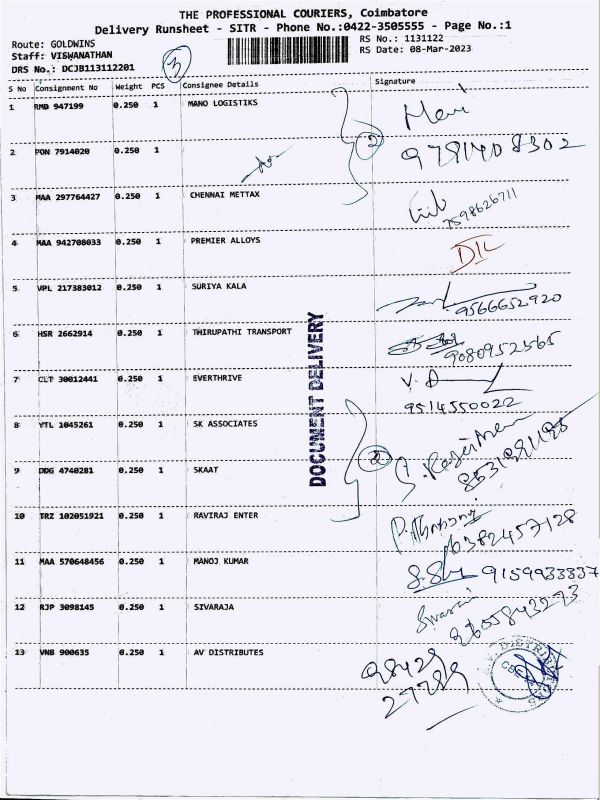 THE PROFESSIONAL COURIERS, Coimbatore
Delivery Runsheet - SITR - Phone No.:0422-3505555 - Page No.:1
Route: GOLDWINS
RS No.: 1131122
Staff: VISWANATHAN
RS Date: 08-Mar-2023
DRS No.: DCJB113112201
3
S No Consignment No Weight PCS Consignee Details Signature
1 RMD 947199 0.250 1 MANO LOGISTIKS
2
2 PON 7914020 0.250 1 9791408302
3 MAA 297764427 0.250 1 CHENNAI METTAX 7598626711
4 MAA 942708033 0.250 1 PREMIER ALLOYS
5 VPL 217383012 0.250 1 SURIYA KALA 9566652920
6 HSR 2662914 0.250 1 THIRUPATHI TRANSPORT 9080952565
7 CLT 30012441 0.250 1 EVERTHRIVE
9514550022
DOCUMENT DELIVERY
8 YTL 1045261 0.250 1 SK ASSOCIATES
2
9 DDG 4740281 0.250 1 SKAAT
10 TRZ 102051921 0.250 1 RAVIRAJ ENTER 6382457128
11 MAA 570648456 0.250 1 MANOJ KUMAR 9159933337
12 RJP 3098145 0.250 1 SIVARAJA
13 VNB 900635 0.250 1 AV DISTRIBUTES 98429
27289